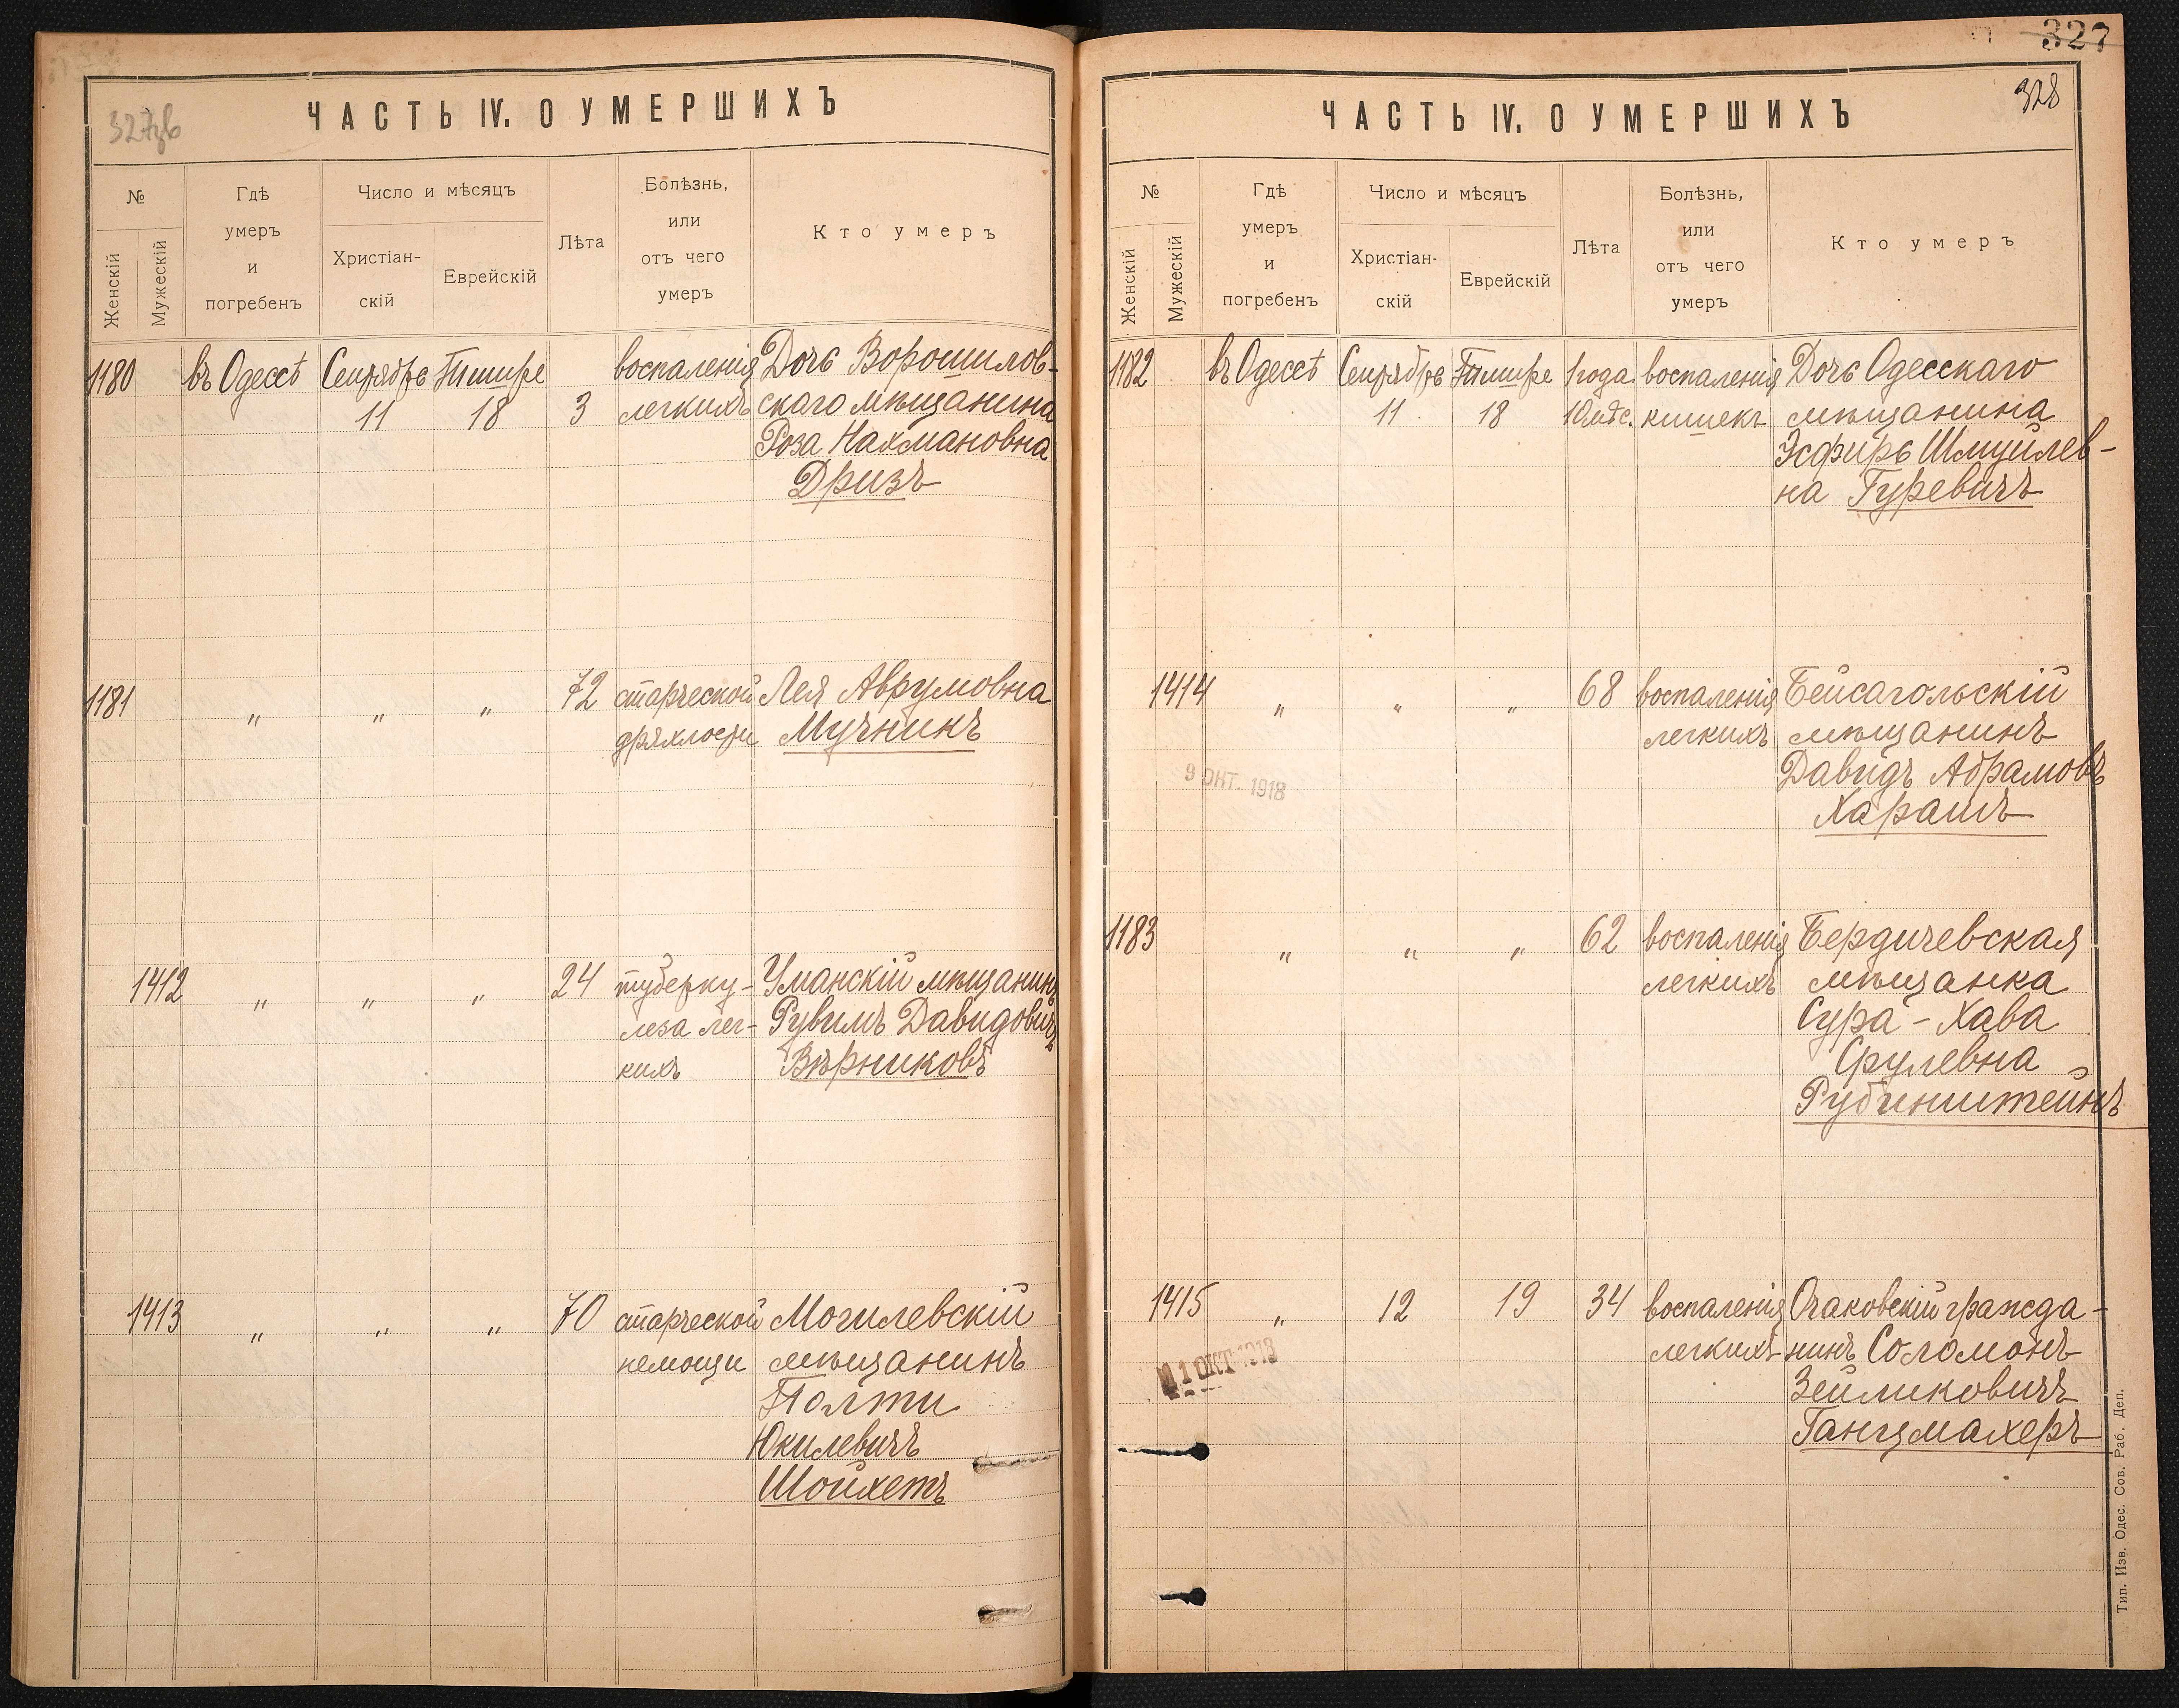 327
327зв
ЧАСТЬ IV. О УМЕРШИХЪ
№
Женскій
Мужескій
Гдѣ
умеръ
и
погребенъ
Число и мѣсяцъ
Христіан-
скій
Еврейскій
Лѣта
Болѣзнь,
или
отъ чего
умеръ
Кто умеръ
1180 въ Одессѣ Сентябрь Тишре воспаленія Дочь Ворошилов-
11 18 3 легкихъ скаго мѣщанина
Роза Нахмановна
Дризъ
1181 " " " 72 старческой Лея Аврумовна
дряхлости Мучникъ
1412 " " " 24 туберку- Уманскій мѣщанинъ
леза лег- Рувимъ Давидовичъ
кихъ Вѣрниковъ
1413 " " " 70 старческой Могилевскій
немощи мѣщанинъ
Палти
Юкилевичъ
Шойхетъ
328
ЧАСТЬ IV. О УМЕРШИХЪ
№
Женскій
Мужескій
Гдѣ
умеръ
и
погребенъ
Число и мѣсяцъ
Христіан-
скій
Еврейскій
Лѣта
Болѣзнь,
или
отъ чего
умеръ
Кто умеръ
1182 въ Одессѣ Сентябрь Тишре 1 года воспаленія Дочь Одесскаго
11 18 10 мѣс. кишекъ мѣщанина
Эсфирь Шмуйлев-
на Гуревичъ
1414 " " " 68 воспаленія Бейсагольскій
легкихъ мѣщанинъ
Давидъ Абрамовъ
9 ОКТ. 1918
Харашъ
1183 " " " 62 воспаленія Бердичевская
легкихъ мѣщанка
Сура-Хава
Срулевна
Рубинштейнъ
1415 " 12 19 34 воспаленія Очаковскій гражда-
легкихъ нинъ Соломонъ
11 ОКТ 1918
Зейликовичъ
Ганцмахеръ
Тип. Изв. Одес. Сов. Раб. Деп.